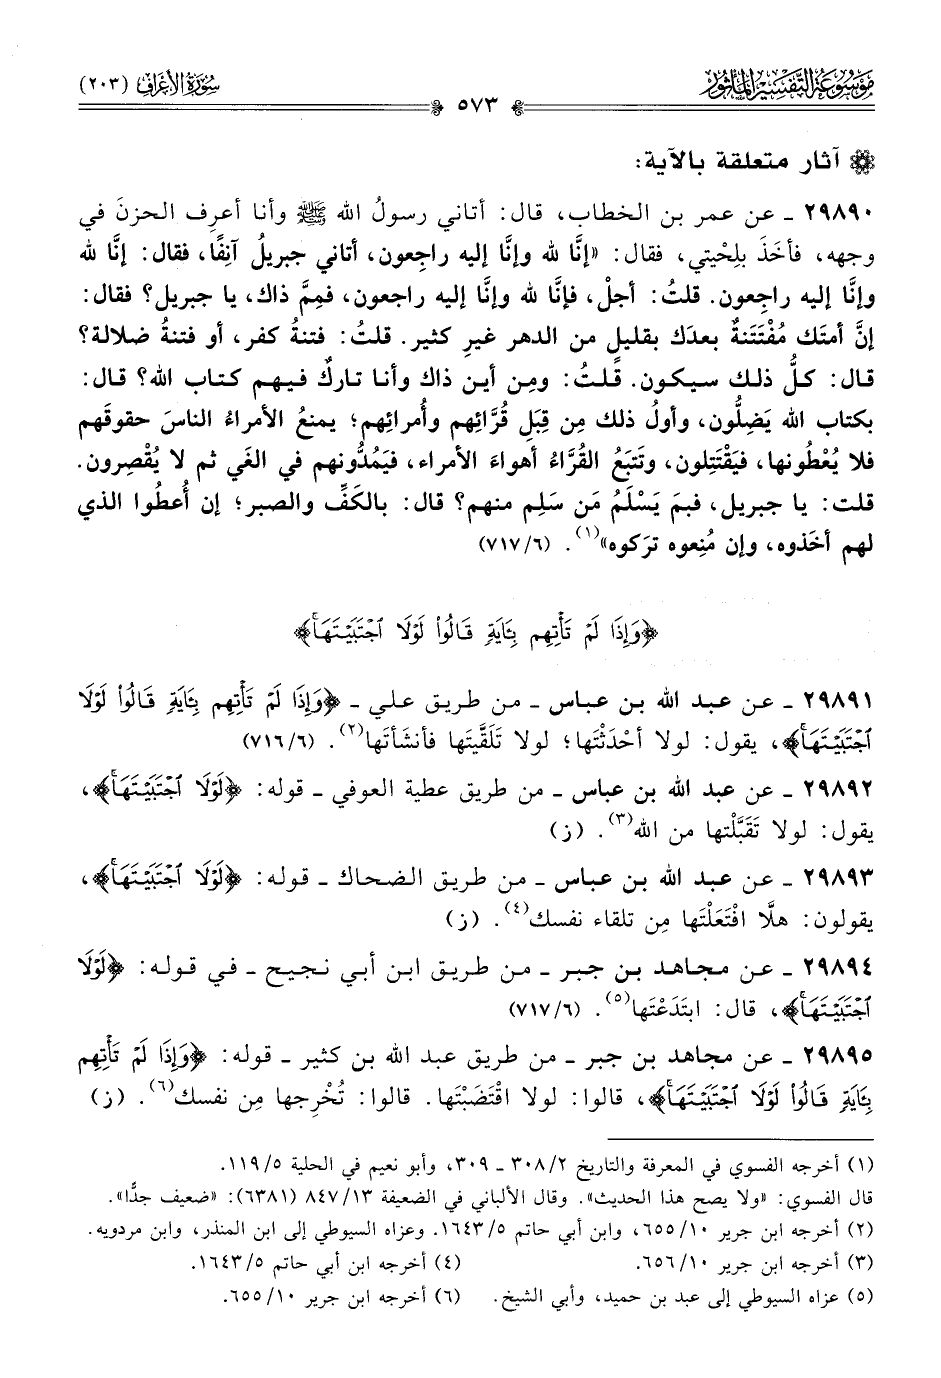 مَوْسُوعَة التَّفْسِير المَأْثُور
سُورَةُ الأَعْرَاف (٢٠٣)
٥٧٣
آثار متعلقة بالآية:
٢٩٨٩٠ ـ عن عمر بن الخطاب، قال: أتاني رسولُ الله ﷺ وأنا أعرِف الحزنَ في
وجهه، فأخَذَ بلِحْيتي، فقال: «إنَّا لله وإنَّا إليه راجِعون، أتاني جبريلُ آنِفًا، فقال: إنَّا لله
وإنَّا إليه راجِعون. قلتُ: أجلْ، فإنَّا لله وإنَّا إليه راجعون، فمِمَّ ذاك، يا جبريل؟ فقال:
إنَّ أمتَك مُفْتَتَنةٌ بعدَك بقليلٍ من الدهر غيرِ كثير. قلتُ: فتنةُ كفر، أو فتنةُ ضلالة؟
قال: كلُّ ذلك سيكون. قلتُ: ومِن أين ذاك وأنا تاركٌ فيهم كتاب الله؟ قال:
بكتاب الله يَضِلُّون، وأولُ ذلك مِن قِبَلِ قُرَّائِهم وأُمرائِهم؛ يمنعُ الأمراءُ الناسَ حقوقَهم
فلا يُعْطُونها، فيَقْتَتِلون، وتَتبَعُ القُرَّاءُ أهواءَ الأمراء، فيَمُدُّونهم في الغَي ثم لا يُقْصِرون.
قلت: يا جبريل، فبمَ يَسْلَمُ مَن سَلِم منهم؟ قال: بالكَفِّ والصبر؛ إن أُعطُوا الذي
لهم أخَذوه، وإن مُنِعوه ترَكوه»(١). (٦/٧١٧)
﴿وَإِذَا لَمْ تَأْتِهِم بِـَٔايَةٍ قَالُوا۟ لَوْلَا ٱجْتَبَيْتَهَا﴾
٢٩٨٩١ ـ عن عبد الله بن عباس ـ من طريق علي ـ ﴿وَإِذَا لَمْ تَأْتِهِم بِـَٔايَةٍ قَالُوا۟ لَوْلَا
ٱجْتَبَيْتَهَا﴾، يقول: لولا أحْدَثْتَها؛ لولا تَلَقَّيتَها فأنشَأتَها(٢). (٦/٧١٦)
٢٩٨٩٢ ـ عن عبد الله بن عباس ـ من طريق عطية العوفي ـ قوله: ﴿لَوْلَا ٱجْتَبَيْتَهَا﴾،
يقول: لولا تَقَبَّلْتها من الله(٣). (ز)
٢٩٨٩٣ ـ عن عبد الله بن عباس ـ من طريق الضحاك ـ قوله: ﴿لَوْلَا ٱجْتَبَيْتَهَا﴾،
يقولون: هلَّا افْتَعَلْتَها مِن تلقاء نفسك(٤). (ز)
٢٩٨٩٤ ـ عن مجاهد بن جبر ـ من طريق ابن أبي نجيح ـ في قوله: ﴿لَوْلَا
ٱجْتَبَيْتَهَا﴾، قال: ابتَدَعْتَها(٥). (٦/٧١٧)
٢٩٨٩٥ ـ عن مجاهد بن جبر ـ من طريق عبد الله بن كثير ـ قوله: ﴿وَإِذَا لَمْ تَأْتِهِم
بِـَٔايَةٍ قَالُوا۟ لَوْلَا ٱجْتَبَيْتَهَا﴾، قالوا: لولا اقْتَضَبْتَها. قالوا: تُخْرِجها مِن نفسك(٦). (ز)
(١) أخرجه الفسوي في المعرفة والتاريخ ٢/٣٠٨ ـ ٣٠٩، وأبو نعيم في الحلية ٥/١١٩.
قال الفسوي: «ولا يصح هذا الحديث». وقال الألباني في الضعيفة ١٣/٨٤٧ (٦٣٨١): «ضعيف جدًّا».
(٢) أخرجه ابن جرير ١٠/٦٥٥، وابن أبي حاتم ٥/١٦٤٣. وعزاه السيوطي إلى ابن المنذر، وابن مردويه.
(٣) أخرجه ابن جرير ١٠/٦٥٦. (٤) أخرجه ابن أبي حاتم ٥/١٦٤٣.
(٥) عزاه السيوطي إلى عبد بن حميد، وأبي الشيخ. (٦) أخرجه ابن جرير ١٠/٦٥٥.